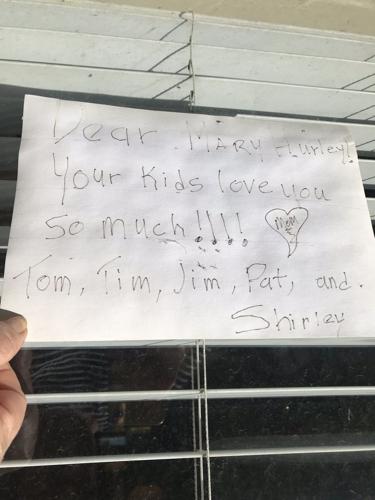 Dear MARY Hurley!
Your Kids love you
so much!!!! Mom
Tom, Tim, Jim, Pat, and.
Shirley